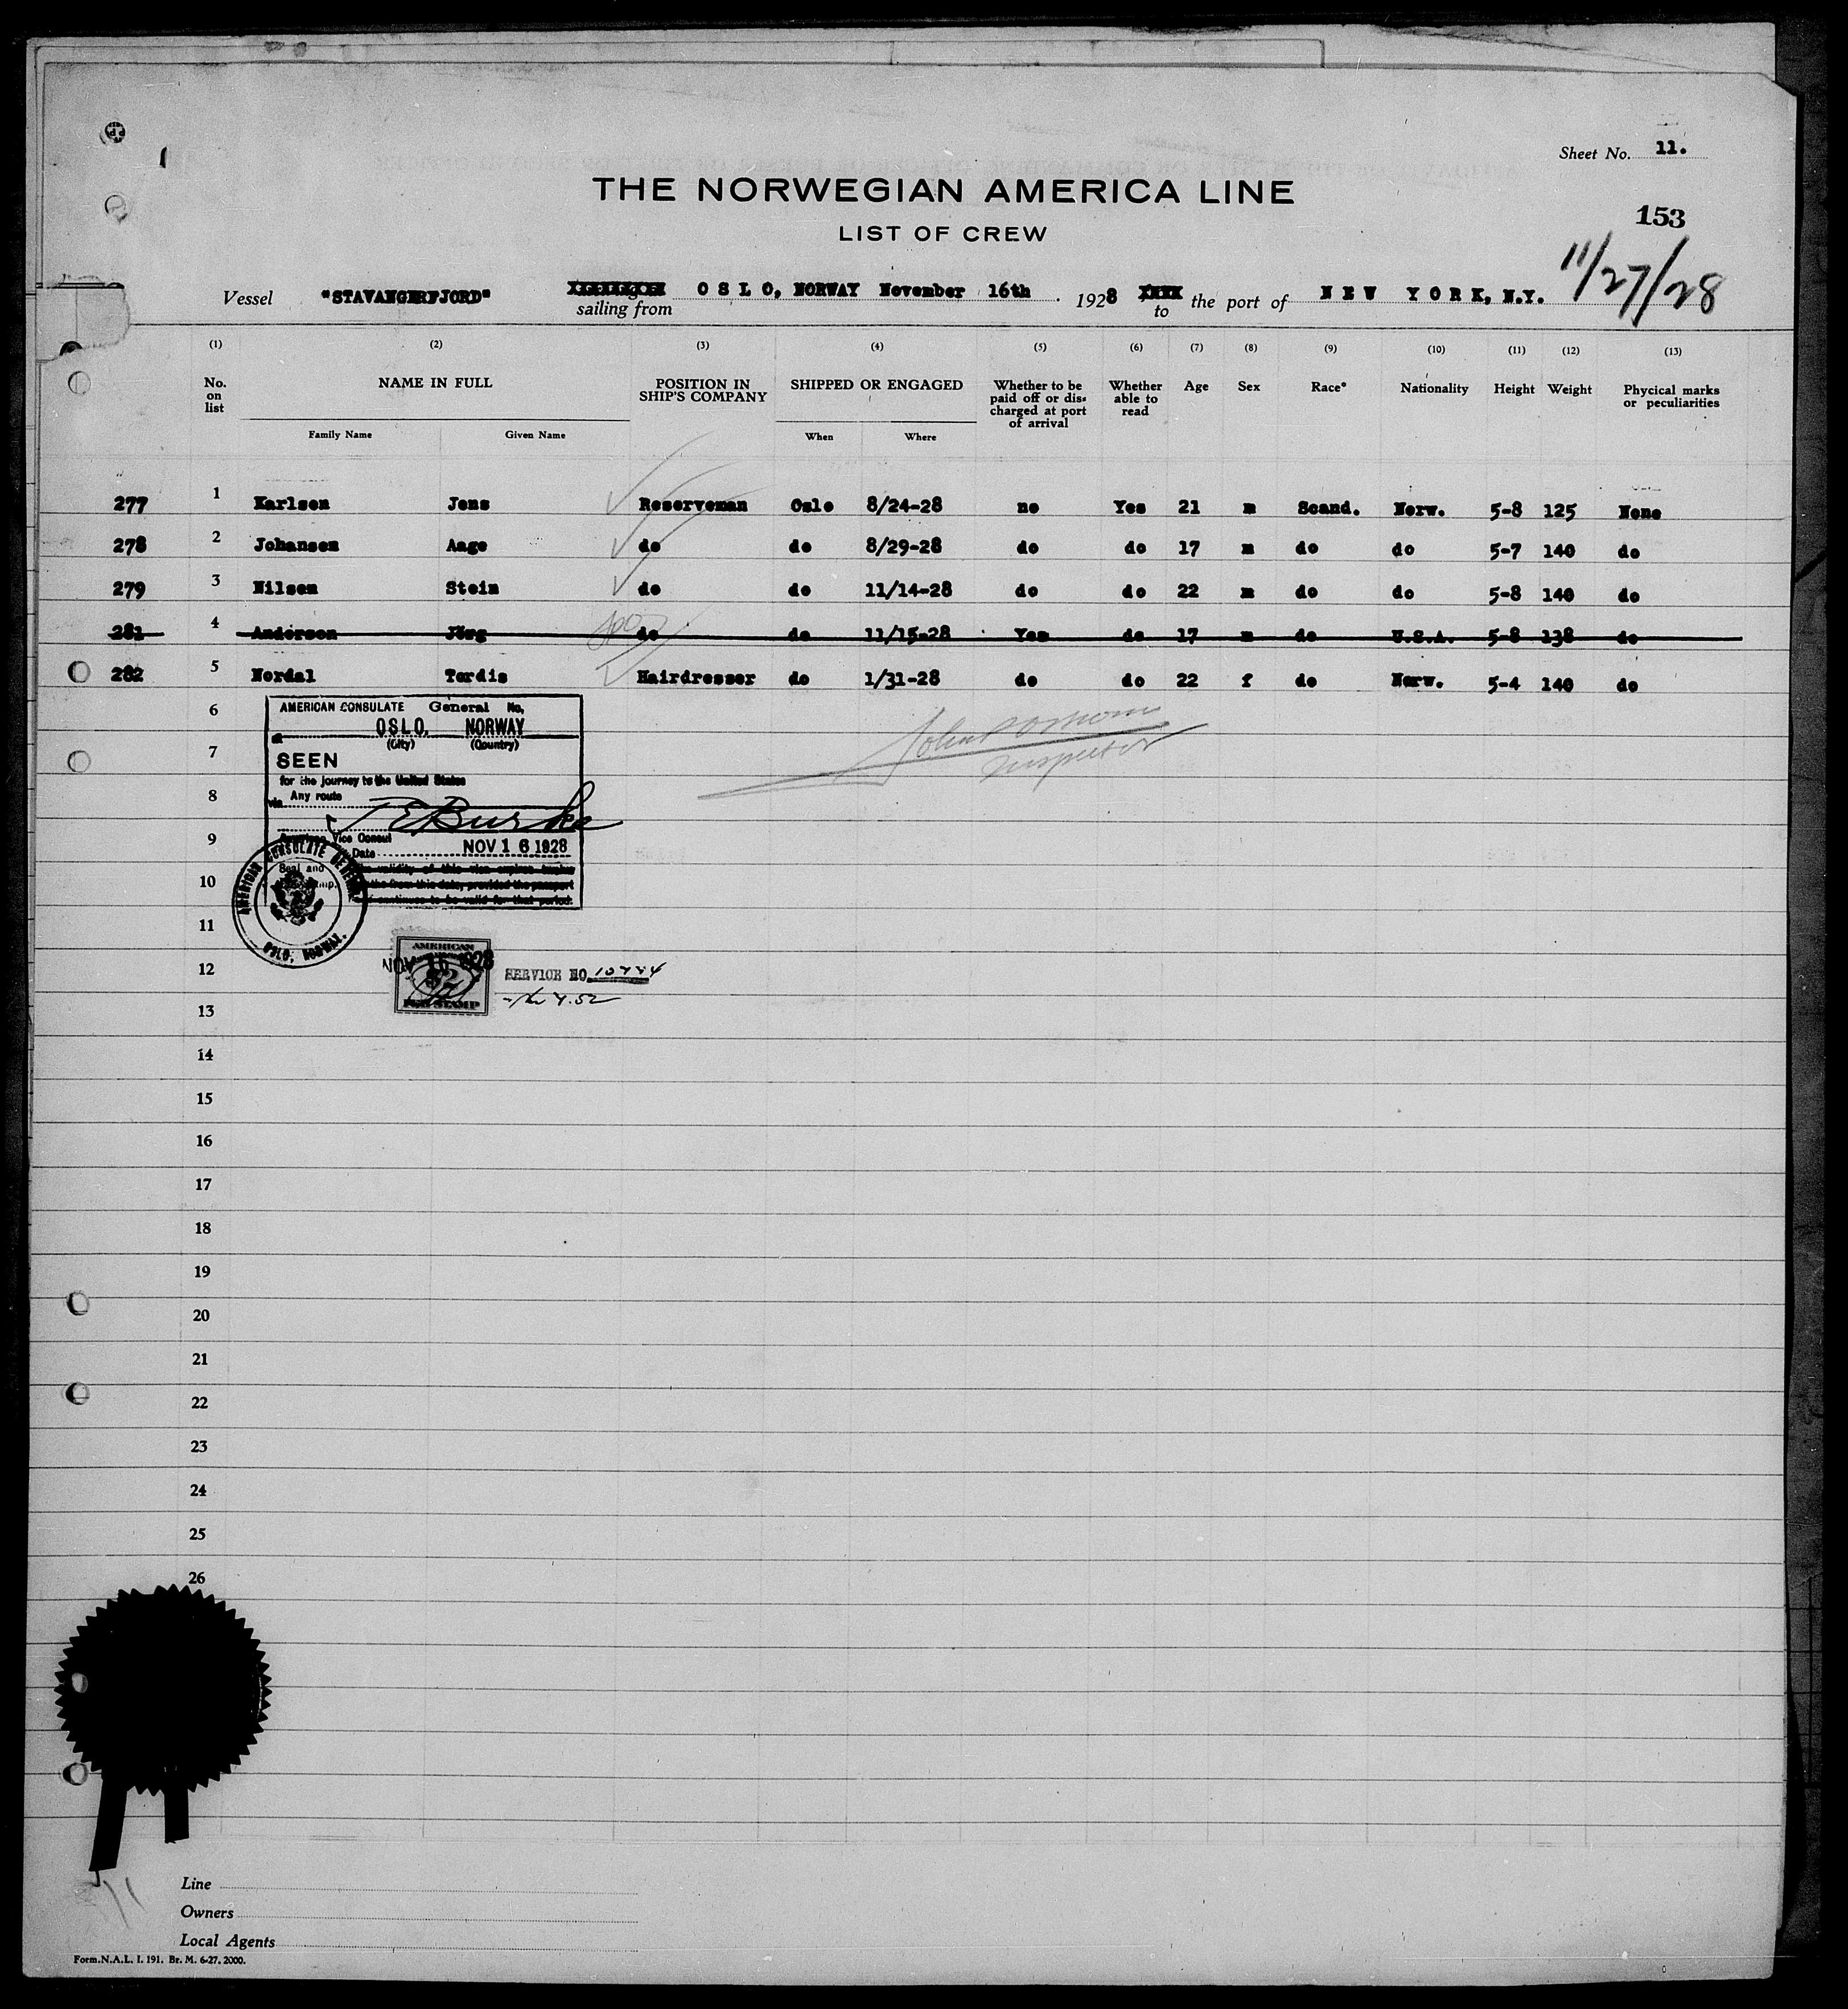 Sheet No. 11.
THE NORWEGIAN AMERICA LINE
153
LIST OF CREW
11/27/28
Vessel "STAVANGERFJORD" sailing from O S L O, NORWAY November 16th . 1928 to the port of N E W Y O R K, N.Y.
(1) (2) (3) (4) (5) (6) (7) (8) (9) (10) (11) (12) (13)
No. on list NAME IN FULL POSITION IN SHIP'S COMPANY SHIPPED OR ENGAGED Whether to be paid off or dis-charged at port of arrival Whether able to read Age Sex Race* Nationality Height Weight Phycical marks or peculiarities
Family Name Given Name When Where
277 1 Karlsen Jens Reserveman Oslo 8/24-28 no Yes 21 m Scand. Norw. 5-8 125 None
278 2 Johansen Aage do do 8/29-28 do do 17 m do do 5-7 140 do
279 3 Nilsen Stein do do 11/14-28 do do 22 m do do 5-8 140 do
281 4 Anderson Jörg do do 11/15-28 Yes do 17 m do U.S.A. 5-8 138 do
282 5 Nordal Tordis Hairdresser do 1/31-28 do do 22 f do Norw. 5-4 140 do
6
7
8
9
10
11
12
13
14
15
16
17
18
19
20
21
22
23
24
25
26
AMERICAN CONSULATE General No,
at OSLO, NORWAY
(City) (Country)
SEEN
for the journey to the United States
via Any route
Burke
American Vice Consul
Date NOV 16 1928
Seal and
the validity of this visa expires twelve
the from this date, provided the passport
continues to be valid for that period.
AMERICAN CONSULATE GENERAL
OSLO, NORWAY.
AMERICAN
NOV 16 1928
FEE STAMP
SERVICE NO.
4.52
Inspector
Line
Owners
Local Agents
Form.N.A.L. I. 191. Br. M. 6-27. 2000.